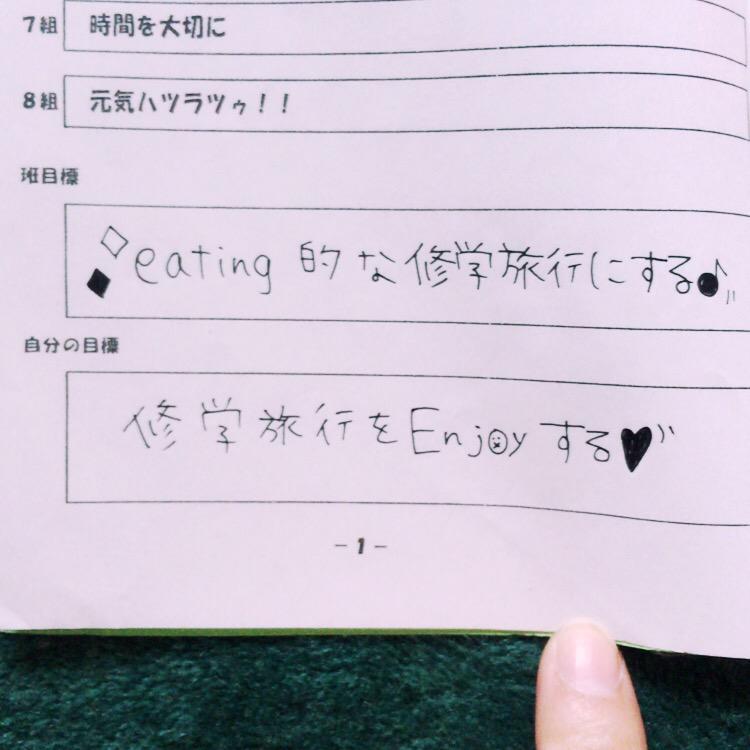 7組 時間を大切に
8組 元気ハツラツゥ!!
班目標
eating 的な修学旅行にする♪
自分の目標
修学旅行をEnjoyする♥
-1-